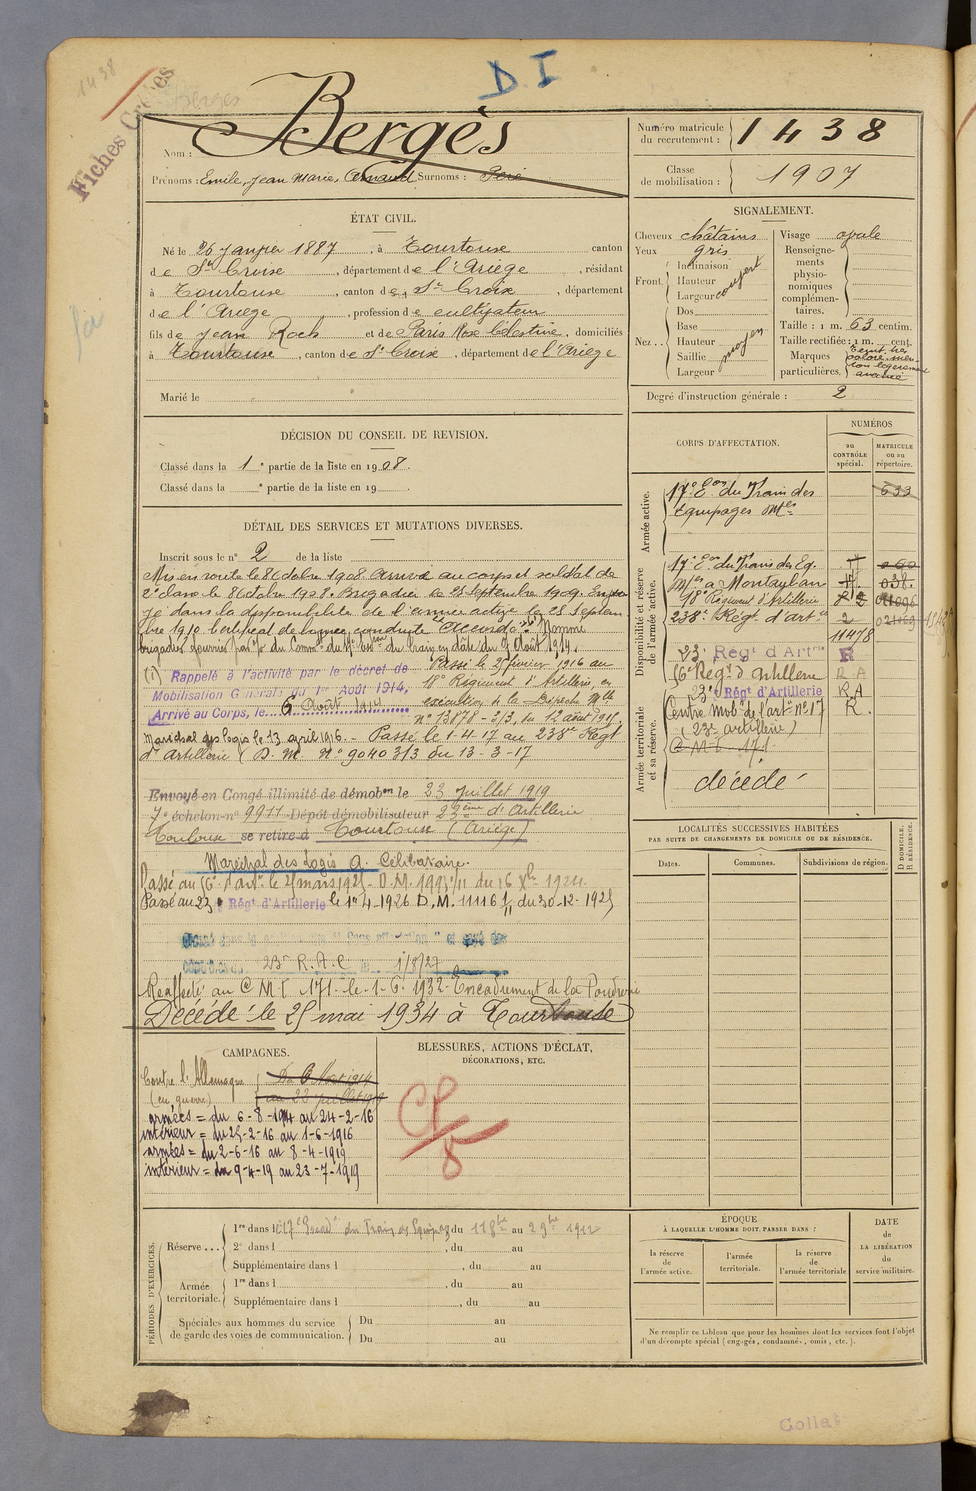 1438
Fiches
Berges
D I
Nom : Bergès
Prénoms : Emile, Jean Marie, Arnaud Surnoms :
Numéro matricule du recrutement : 1438
Classe de mobilisation : 1907
ÉTAT CIVIL.
Né le 26 Janvier 1887, à Tourtouse canton
de Ste Croix, département de l'Ariège, résidant
à Tourtouse, canton de Ste Croix, département
de l'Ariège, profession de cultivateur
fils de Jean Roch et de Paris Rose Célestine, domiciliés
à Tourtouse, canton de Ste Croix, département de l'Ariège
Marié le
SIGNALEMENT.
Cheveux châtains
Yeux gris
Front Inclinaison
Hauteur
Largeur
couvert
Nez.. Dos
Base
Hauteur
Saillie
Largeur
moyen
Visage ovale
Renseignements physionomiques complémentaires.
Taille : 1 m. 63 centim.
Taille rectifiée : 1 m. cent.
Marques particulières. teint très coloré, menton légèrement avancé
Degré d'instruction générale : 2
DÉCISION DU CONSEIL DE REVISION.
Classé dans la 1e partie de la liste en 1908.
Classé dans la e partie de la liste en 19
DÉTAIL DES SERVICES ET MUTATIONS DIVERSES.
Inscrit sous le n° 2 de la liste
Mis en route le 8 Octobre 1908. Arrivé au corps et soldat de
2e classe le 8 Octobre 1908. Brigadier le 25 septembre 1909. Envoyé
dans la disponibilité de l'armée active le 25 Septembre 1910. Certificat de bonne conduite "Accordé". Nommé
brigadier fourrier par du Commt du Train en date du 9 Août 1914.
(1) Rappelé à l'activité par le décret de
Mobilisation Générale du 1er Août 1914,
Arrivé au Corps, le 6 Août 1914
Passé le 25 février 1916 au
18e Régiment d'Artillerie, en
exécution de la Dépêche Mlle
n° 13878-2/3, du 12 août 1915.
Maréchal des logis le 13 avril 1916. - Passé le 1-4-17 au 238e Régt
d'Artillerie (D. M. N° 9040 3/3 du 13-3-17
Envoyé en Congé illimité de démobon le 23 Juillet 1919
7e échelon n° 9911 Dépôt démobilisateur 23ème d'Artillerie
Toulouse se retire à Tourtouse (Ariège)
Maréchal des Logis A. Célibataire.
Passé au 56e d'art. le 25 mars 1925 - D.M. 1995 1/11 du 16 Xbre 1924.
Passé au 23e Régt d'Artillerie le 1er 4-1926 D.M. 11116 1/11 du 30-12-1925
23e R.A.C le 1/8/27
Réaffecté au C M T 171 le 1-6-1932 - Encadrement de la Poudrerie
Décédé le 25 mai 1934 à Tourtouse
CORPS D'AFFECTATION.
NUMÉROS
au CONTRÔLE spécial.
MATRICULE ou au répertoire.
Armée active.
17e Eon du Train des
Equipages Mres
633
Disponibilité et réserve de l'armée active.
17e Eon du Train des Eq.
Mres à Montauban 038.
18e Régiment d'Artillerie
238e Régt d'Artie 2
11478
23e Régt d'Artie R
56e Régt d'Artillerie R A
23e Régt d'Artillerie R A
Armée territoriale et sa réserve.
Centre Mobn de l'art. n° 17 R.
(23e artillerie)
C M T 171
décédé
LOCALITÉS SUCCESSIVES HABITÉES
PAR SUITE DE CHANGEMENTS DE DOMICILE OU DE RÉSIDENCE.
Dates.
Communes.
Subdivisions de région.
D DOMICILE. R RÉSIDENCE.
CAMPAGNES.
Contre l'Allemagne Du 6 Août 1914
(en guerre) au 23 Juillet 1919
armées = du 6-8-1914 au 24-2-16
intérieur = du 25-2-16 au 1-6-1916
armées = du 2-6-16 au 8-4-1919
intérieur = du 9-4-19 au 23-7-1919
BLESSURES, ACTIONS D'ÉCLAT,
DÉCORATIONS, ETC.
CP
8
PÉRIODES D'EXERCICES.
Réserve... 1re dans l 17e Escad. du Train des Equipages du 11 8bre au 29 8bre 1912
2e dans l , du au
Supplémentaire dans l , du au
Armée territoriale. 1re dans l , du au
Supplémentaire dans l , du au
Spéciales aux hommes du service de garde des voies de communication. Du au
Du au
ÉPOQUE
À LAQUELLE L'HOMME DOIT PASSER DANS :
la réserve de l'armée active.
l'armée territoriale.
la réserve de l'armée territoriale
DATE de LA LIBÉRATION du service militaire.
Ne remplir ce tableau que pour les hommes dont les services font l'objet
d'un décompte spécial (engagés, condamnés, omis, etc.).